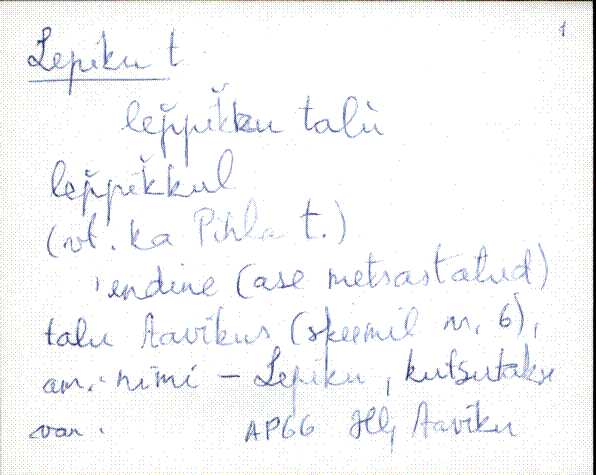 1
Lepiku t
lep̆pik̆ku talù
lep̆pik̆kul
(vt. ka Pihla t.)
'endine (ase metsastatud)
talu Aavikus (skeemil nr. 6),
am. nimi – Lepiku, kutsutakse
van. AP66 Hlj Aaviku